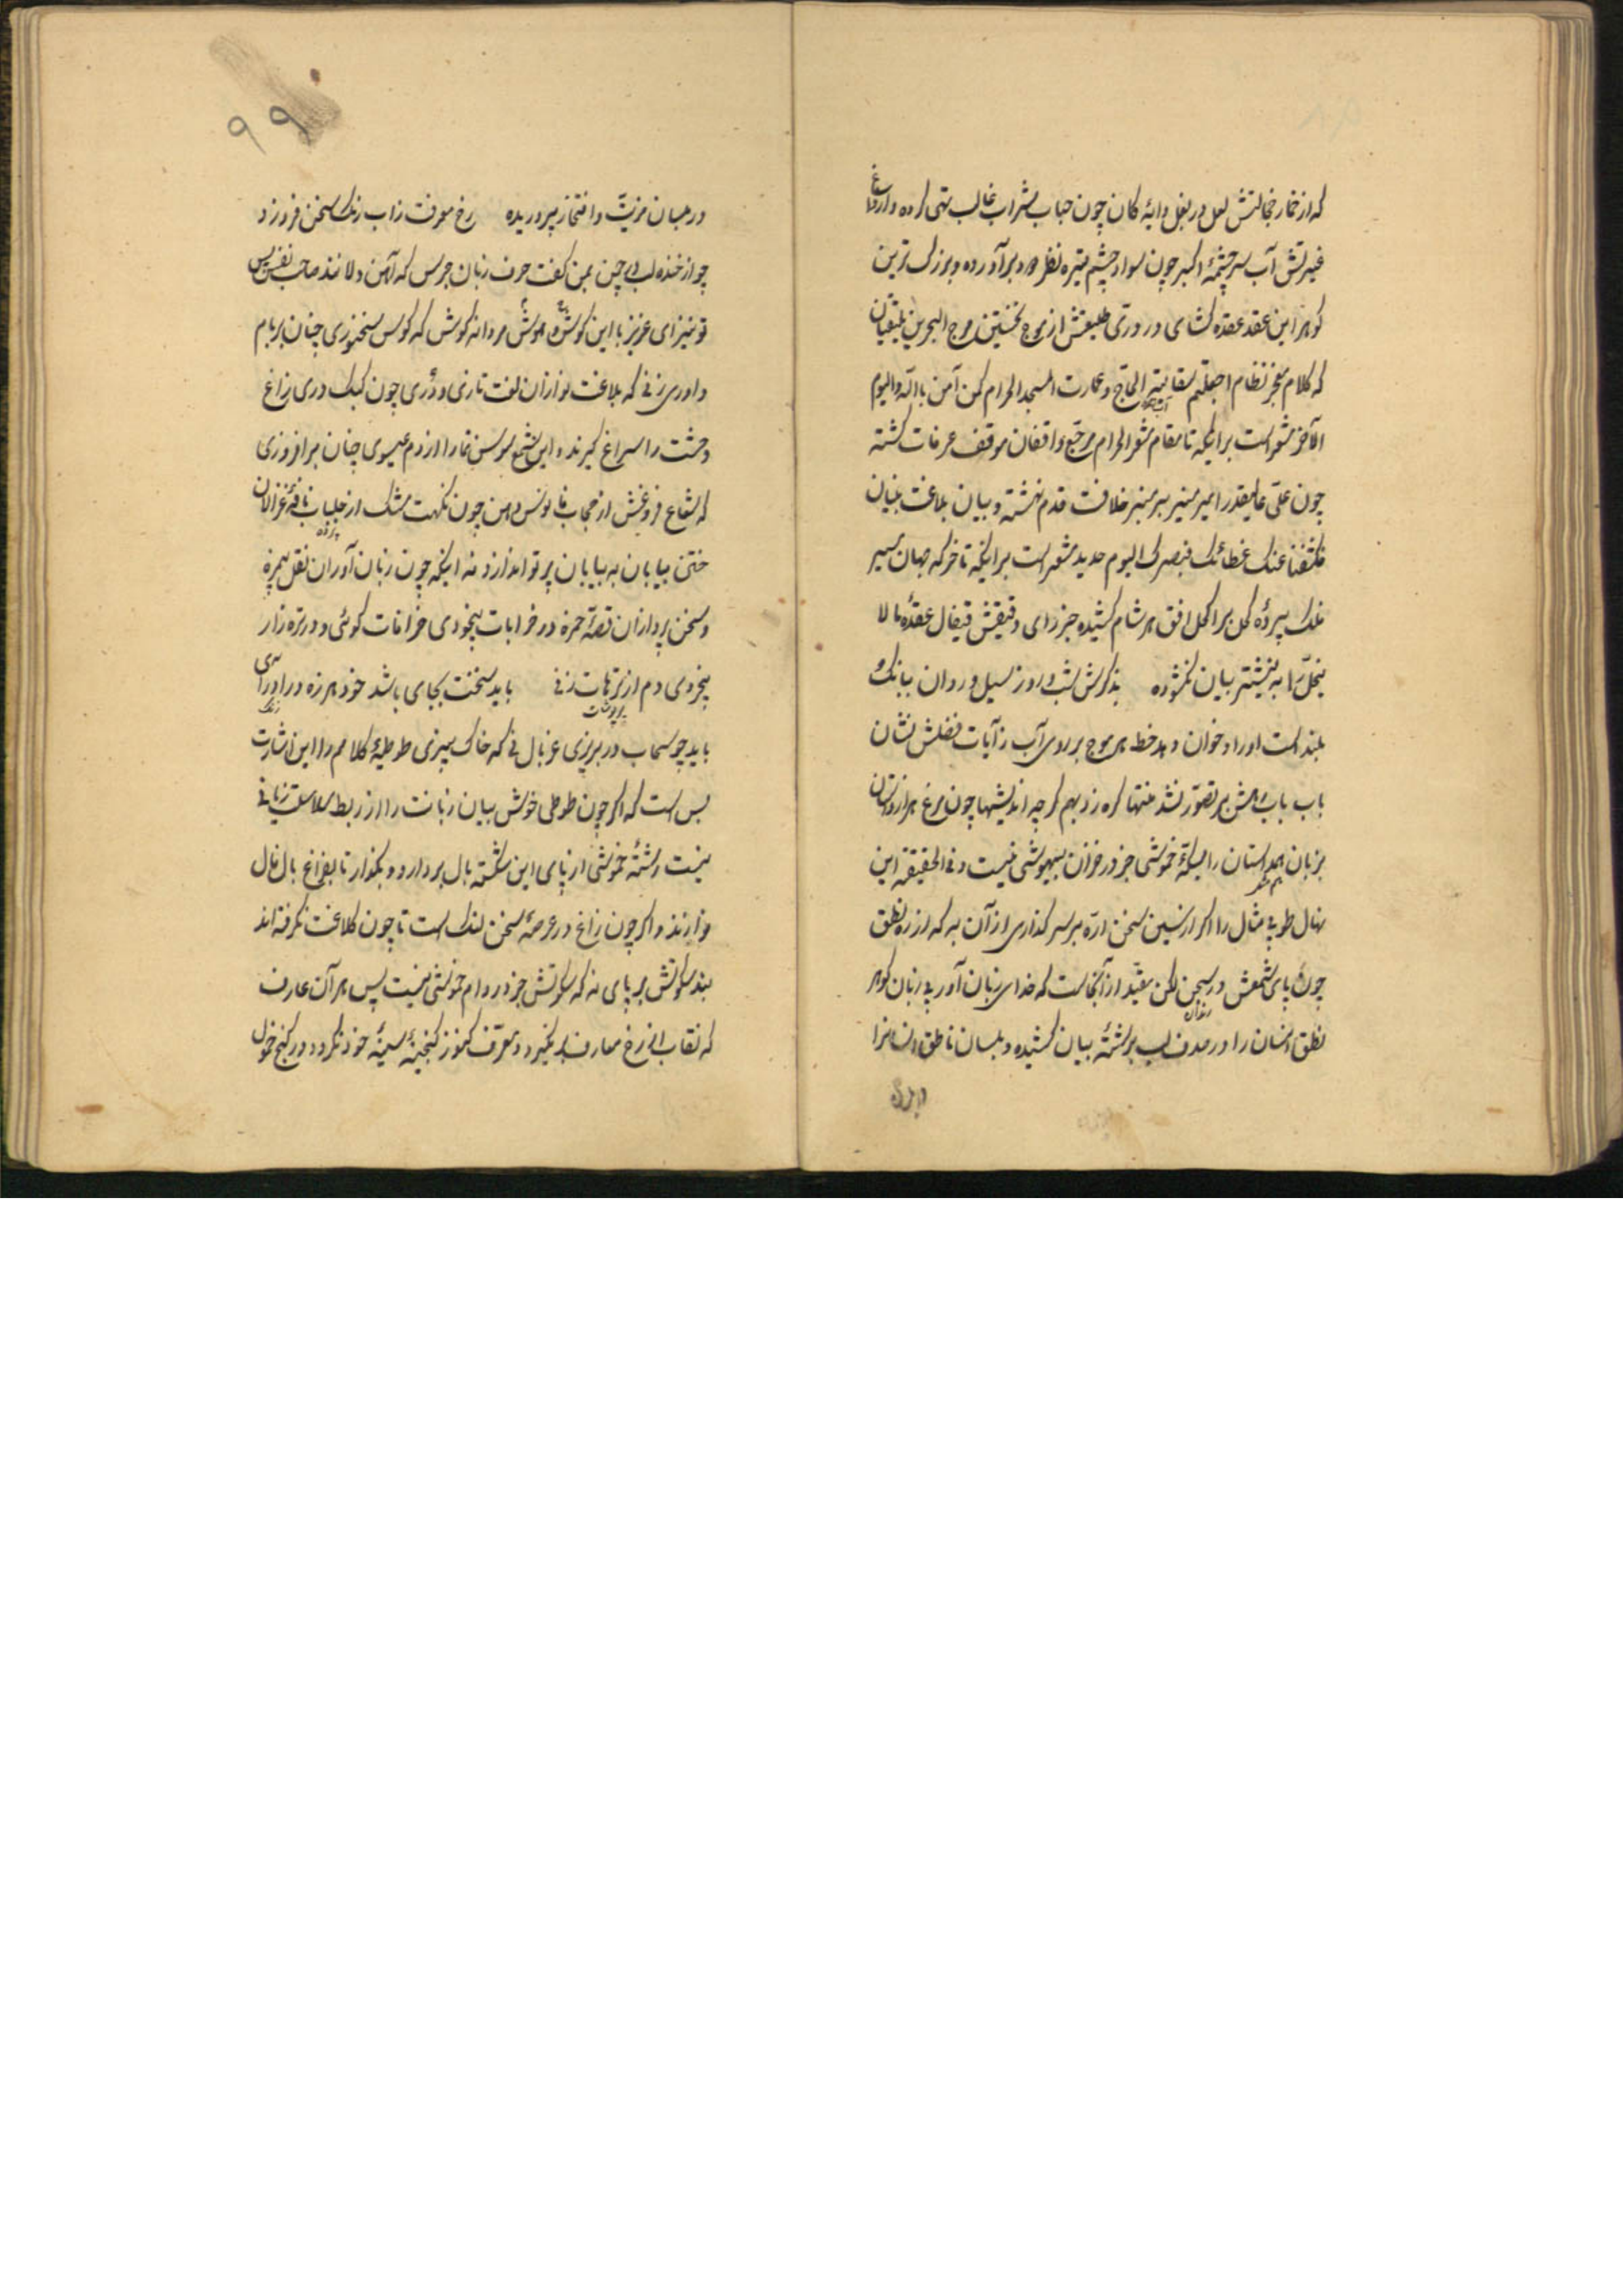 که از خمار خجالتش لعل در بغل دایهٔ کان چون حباب شراب غالب تهی کرده و از داغ
غیرتش آب سرچشمهٔ اکبر چون سواد چشم تیره نظر بدر آورده و بزرگ ترین
گوهر این عقد عقده گشای در دری طلیعتش از موج نخستین مرج البحرین یلتقیان
که کلام معجز نظام اجعلتم سقایة الحاج و عمارت المسجد الحرام کمن آمن بالله والیوم
الآخر مشعر است برانکه تا مقام مشعر الحرام مرجع واقفان موقف عرفات گشته
چون علی عالیقدر امیر منیر بر منبر خلافت قدم نهشته و بیان بلاغت بنیان
فکشفنا عنک غطائک فبصرک الیوم حدید مشعر است برانکه تا خرکه جهان مسیر
فلک پرده کحل بر اکحل افق هر شام کشیده جز رای دقیقش قیفال عقدهٔ ما لا
ینحل را به نیشتر بیان نگشوده بذکرش شب و روز سیل روان ببانک
بلند است اوراد خوان دهد خط هر موج بر روی آب ز آیات فضلش نشان
باب باب مدحش بر تصور نشد منتها گره زد بهم گرچه اندیشها چون مرغ هزار داستان
بر زبان همداستان را مسکهٔ خموشی جز در خزان بیهوشی نیست و فی الحقیقة این
نهال طوبی مثال را اگر از سین سخن اره بر سر گذاری از آن به که از ره نطق
چون پای شمعش در سجن لکن مقید از آنجاست که خدای زبان آور بی زبان گوهر
زندان
نطق انسان را در صدف لب برشتهٔ بیان کشیده و بلسان ناطق
۹۹
در میان مزیت و افتخار پروریده رخ معرفت زاب رنک سخن فروزد
چو از خنده لب در چمن بمن گفت حرف زبان جرس که آهن دلانند صاحب نفس پس
تو نیز ای عزیز با این گوش و هوش مردانه کوش که کوس سخنوری چنان بر بام
داوری زنی که بلاغت نوازان لغت تازی و دری چون کبک دری زاغ
وحشت را سراغ گیرند و این شمع سوسن نما را از دم عیسوی چنان برافروزی
که شعاع فروغش از حجاب فانوس دهن چون نکهت مشک از جلباب نافهٔ غزالان
پرده
ختن بیابان به بیابان پرتو اندازد نه اینکه چون زبان آوران نقل بیمزه
و سخن پردازان قصهٔ حمزه در خرابات بیخودی خرافات گوئی و در تره زار
بیخردی دم از ترهات زنی باید سخنت بجای باشد خود هرزه درا درای
باید چو سحاب در بریزی غربال نی که خاک بیزی طوطیهٔ کلامم را این اشارت
بس است که اگر چون طوطی خوش بیان زبانت را از ربط سلاست زبانی
نیست رشتهٔ خموشی از پای این شکسته بال بردار و بگذار تا بفراغ بال فال
نوازند و اگر چون زاغ در عرصهٔ سخن لنک است تا چون کلاغت نگرفته اند
بند سکوتش بر پای نه که سکوتش جز در دام خموشی نیست پس هر آن عارف
که نقاب از رخ معارف بر نگیرد و معرف کنوز گنجینهٔ سینهٔ خود نگردد در کنج خمول